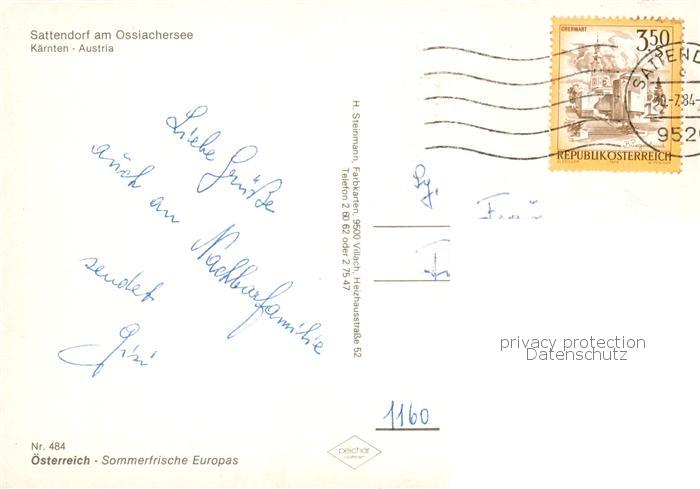 Sattendorf am Ossiachersee
Kärnten - Austria
OBERWART
3,50
S
Burgenland
REPUBLIK ÖSTERREICH
SATTEND
-7.84-
952
Liebe Grüße
auch an Nachbarfamilie
sendet
Gisi
H. Steinmann, Farbkarten, 9500 Villach, Heizhausstraße 52
Telefon 2 60 62 oder 2 75 47
Frau
privacy protection
Datenschutz
1160
Nr. 484
Österreich - Sommerfrische Europas
peichar